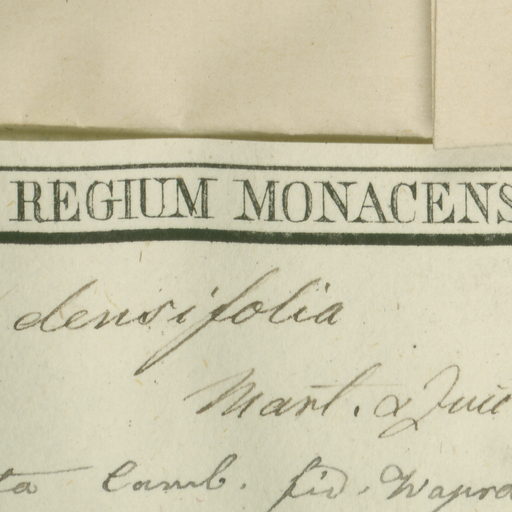 REGIUM MONACENS
densifolia
Mart. & Zucc
ta Camb. fid. Wawra